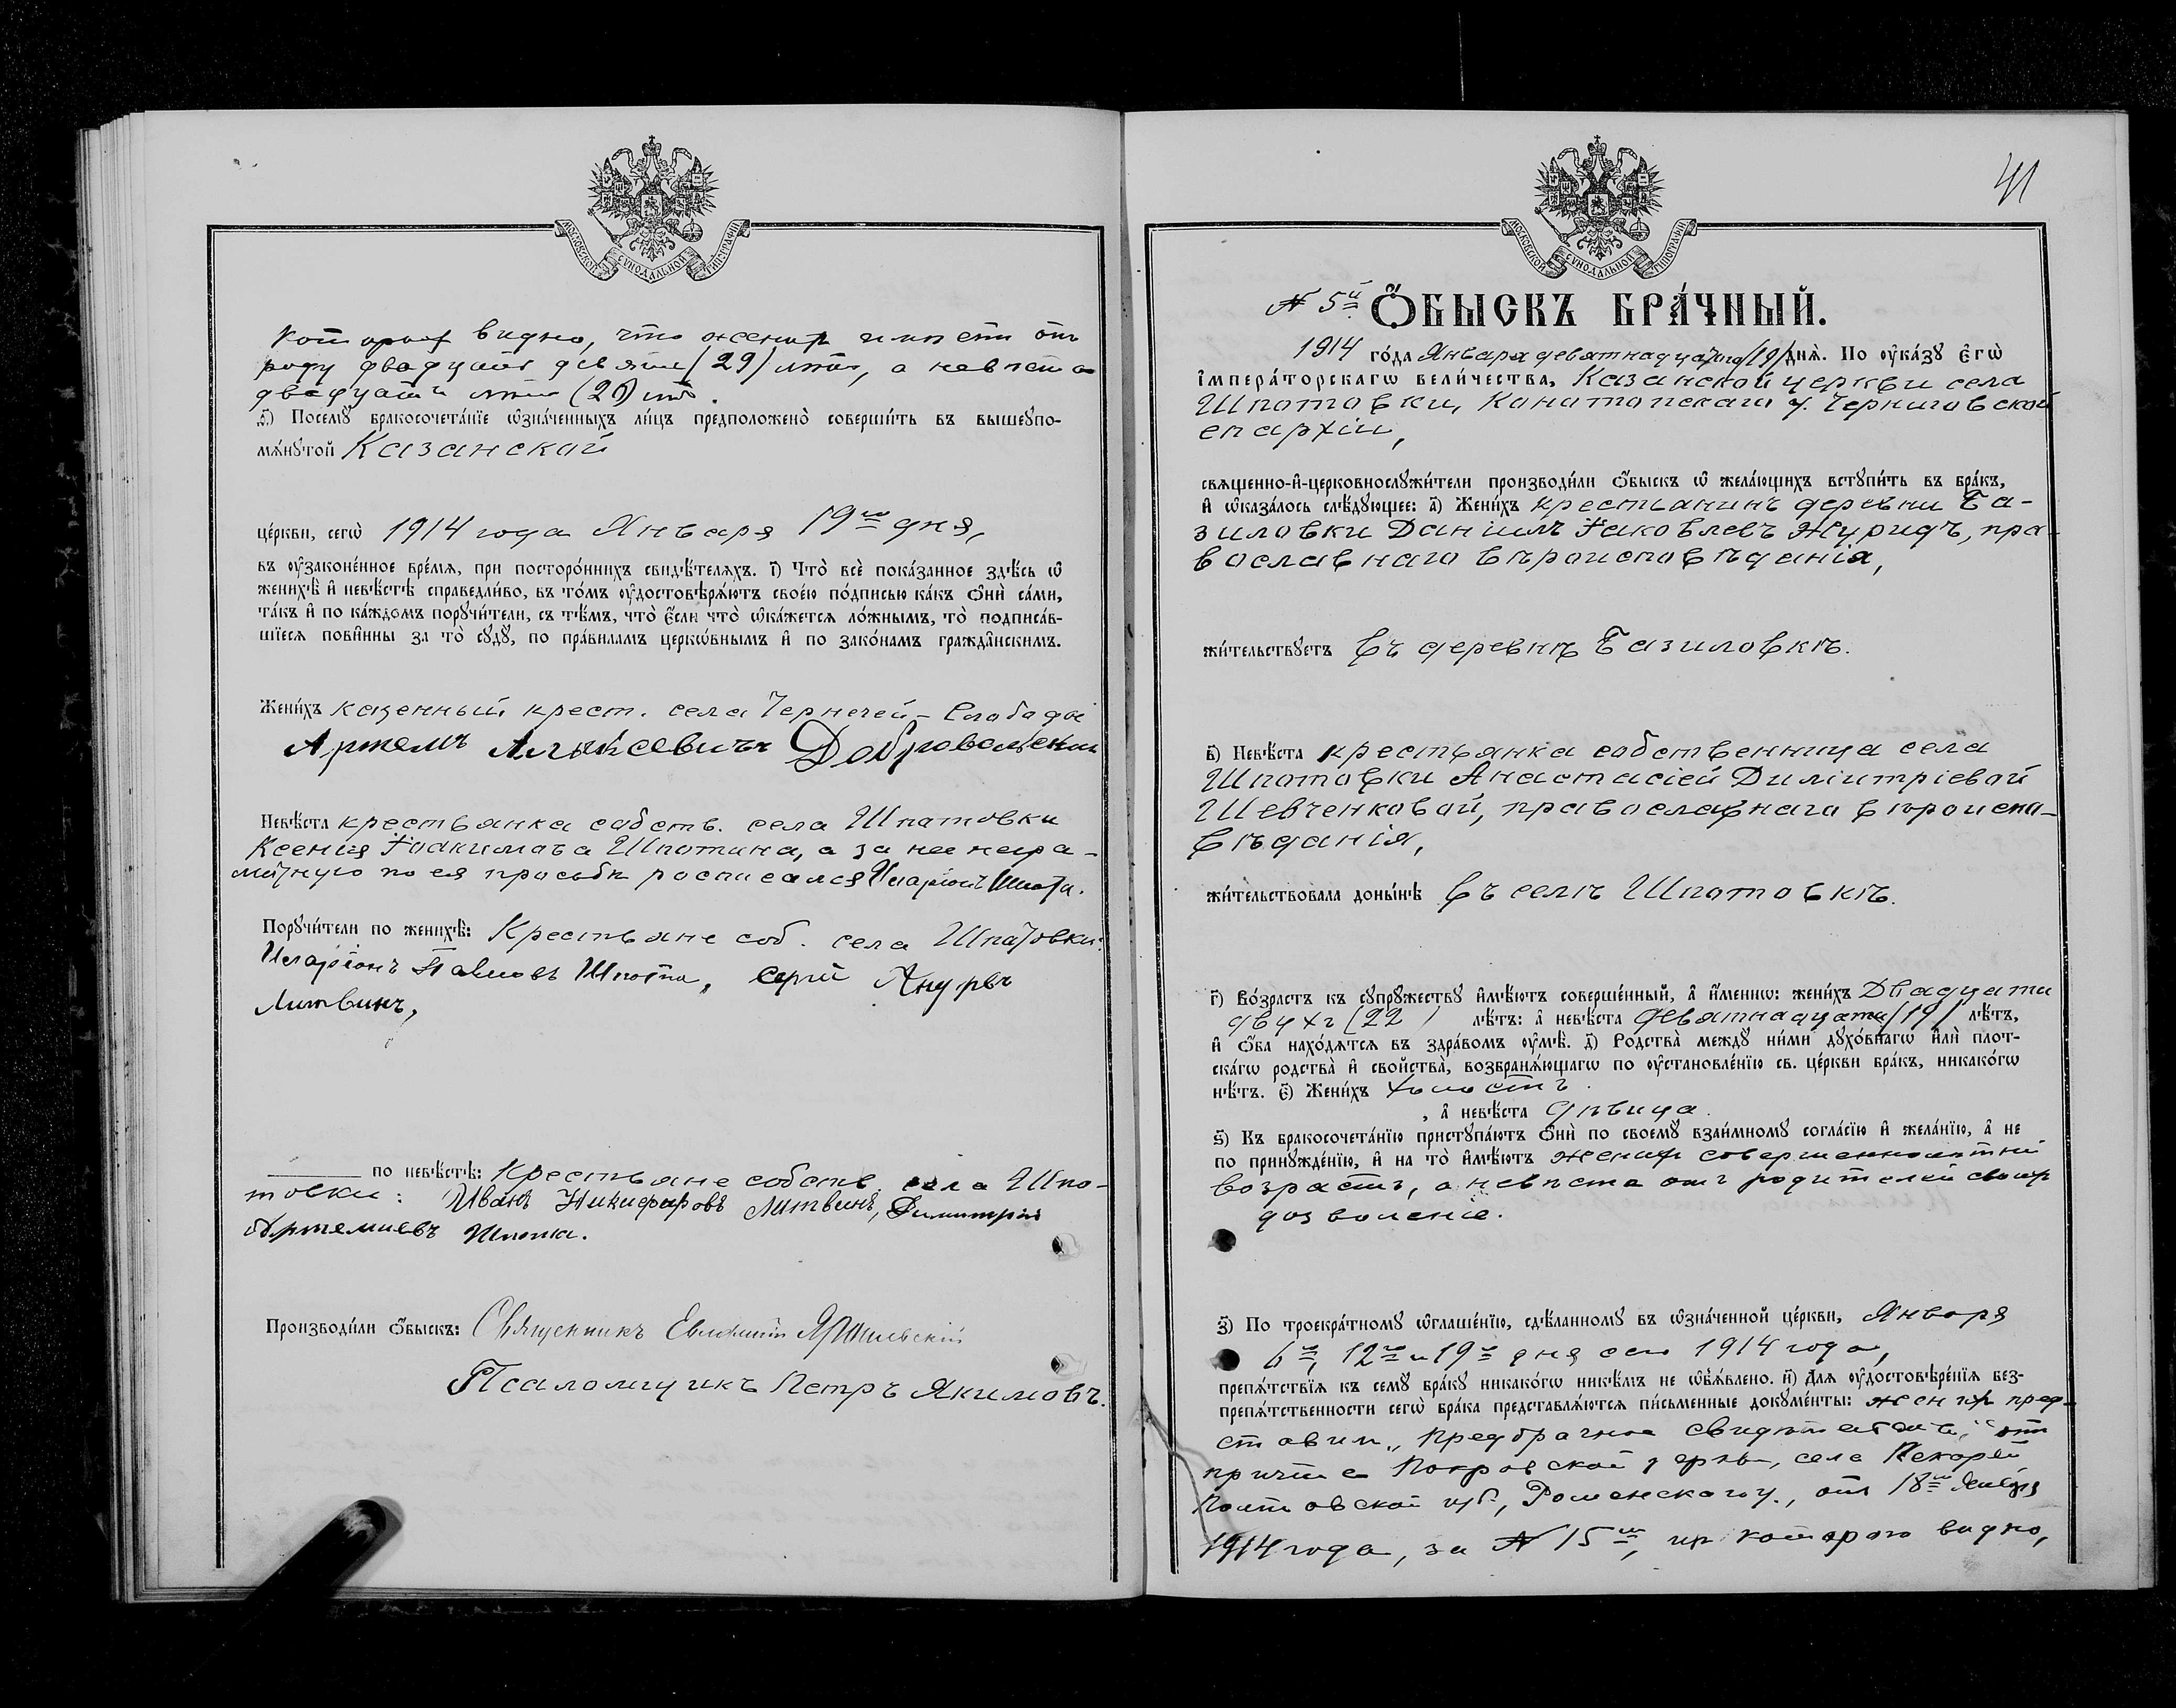 МОСКОВСКОЙ СѴНОДАЛЬНОЙ ТИПОГРАФІИ
котораго видно, что женихъ имѣетъ отъ
роду двадцать девять (29) лѣтъ, а невѣста
двадцать лѣтъ (20) лѣтъ.
Посемꙋ̀ бракосочета́нїе ѡ҆зна́ченныхъ ли́цъ предположено̀ соверши́ть въ вышеꙋпо-
мѧ́нꙋтой Казанской
це́ркви, сегѡ̀ 1914 года Января 19го дня,
въ ᲂу҆зако́ненное вре́мѧ, при посторо́ннихъ свидѣ́телѧхъ. Что̀ всѐ пока́занное здѣ́сь ѡ҆
женихѣ̀ и҆ невѣ́стѣ справедли́во, въ то́мъ ᲂу҆достовѣрѧ́ютъ свое́ю по́дписью ка́къ ѻ҆нѝ са́ми,
та́къ и҆ по ка́ждомъ порꙋчи́тели, съ тѣ́мъ, что̀ є҆́сли что̀ ѡ҆ка́жетсѧ ло́жнымъ, то̀ подписа́в-
шїесѧ пови́нны за то̀ сꙋдꙋ̀, по пра́виламъ церкѡ́внымъ и҆ по зако́намъ гражда́нскимъ.
Жени́хъ казенный крест. села Чернечей-Слободы
Артемъ Алѣксевичъ Добровольский
Невѣ́ста крестьянка собств. села Шпотовки
Ксенія Іоакимова Шпотина, а за нее негра-
мотную по ея просьбѣ росписался Иларіонъ Шпота.
Порꙋчи́тели по женихѣ̀: Крестьяне соб. села Шпотовки:
Иларіонъ Павловъ Шпота, Сергій
Литвинъ,
по невѣ́стѣ: Крестьяне собств. села Шпо-
товки: Иванъ Никифоровъ Литвинъ, Димитрій
Артемиевъ Шпота.
Производи́ли ѻ҆́быскъ: Священникъ Евфимій
Псаломщикъ Петръ Якимовъ.
41
МОСКОВСКОЙ СѴНОДАЛЬНОЙ ТИПОГРАФІИ
№ 5й Ѻ҆́БЫСКЪ БРА́ЧНЫЙ.
1914 го́да Января девятнадцатаго /19/ днѧ̀. По ᲂу҆ка́зꙋ є҆гѡ̀
і҆мпера́торскагѡ вели́чества, Казанской церкви села
Шпотовки, Конотопскаго у. Черниговской
епархіи,
свѧщенно-и҆-церковнослꙋжи́тели производи́ли ѻ҆́быскъ ѡ҆ жела́ющихъ встꙋпи́ть въ бра́къ,
и҆ ѡ҆каза́лось слѣ́дꙋющее: а҃) Жени́хъ крестьянинъ деревни Ба-
зиловки Даніилъ Іаковлевъ Журидъ, пра-
вославнаго вѣроисповѣданія,
жи́тельствꙋетъ въ деревнѣ Базиловкѣ.
в҃) Невѣ́ста крестьянка собственница села
Шпотовки Анастасіей Димитріевой
Шевченковой, православнаго вѣроиспо-
вѣданія,
жи́тельствовала доны́нѣ въ селѣ Шпотовкѣ.
г҃) Во́зрастъ къ сꙋпрꙋ́жествꙋ и҆мѣ́ютъ соверше́нный, а҆ и҆́меннѡ: жени́хъ двадцати
двухъ (22) лѣ́тъ: а҆ невѣ́ста девятнадцати /19/ лѣ́тъ,
и҆ ѻ҆́ба нахо́дѧтсѧ въ здра́вомъ ᲂу҆мѣ̀. д҃) Родства̀ междꙋ ни́ми дꙋхо́внагѡ и҆лѝ плот-
ска́гѡ родства̀ и҆ свойства̀, возбранѧ́ющагѡ по ᲂу҆становле́нїю св. це́ркви бра́къ, никако́гѡ
нѣ́тъ. є҃) Жени́хъ холостъ
, а҆ невѣ́ста дѣвица.
ѕ҃) Къ бракосочета́нїю пристꙋпа́ютъ ѻ҆нѝ по своемꙋ̀ взаи́мномꙋ согла́сїю и҆ жела́нїю, а҆ не
по принꙋжде́нїю, и҆ на то̀ и҆мѣ́ютъ женихъ совершеннолѣтній
возрастъ, а невѣста отъ родителей своихъ
дозволеніе.
з҃) По троекра́тномꙋ ѡ҆глаше́нїю, сдѣ́ланномꙋ въ ѡ҆зна́ченной це́ркви, Января
6го, 12го и 19го дня сего 1914 года,
препѧ́тствїѧ къ семꙋ̀ бра́кꙋ никако́гѡ никѣ́мъ не ѡ҆б̾ѧ́влено. и҃) Длѧ ᲂу҆достовѣре́нїѧ без-
препѧ́тственности сегѡ̀ бра́ка представлѧ́ютсѧ пи́сьменные докꙋме́нты: женихъ пред-
ставилъ „Предбрачное свидѣтельство“ отъ
причта Покровской церкви, села Пекорей
Полтавской губ., Роменскаго у., отъ 18го Января
1914 года, за № 15м, изъ котораго видно,